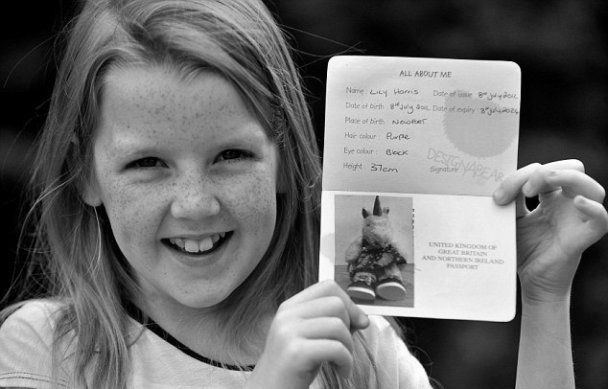 ALL ABOUT ME
Name: Lily Harris Date of issue 8th July 2012
Date of birth 8th July 2012 Date of expiry 8th July 2026
Place of birth: NEWPORT
Hair colour: Purple
Eye colour: Black
Height: 37cm
DESIGNABEAR
Signature
UNITED KINGDOM OF
GREAT BRITAIN
AND NORTHERN IRELAND
PASSPORT